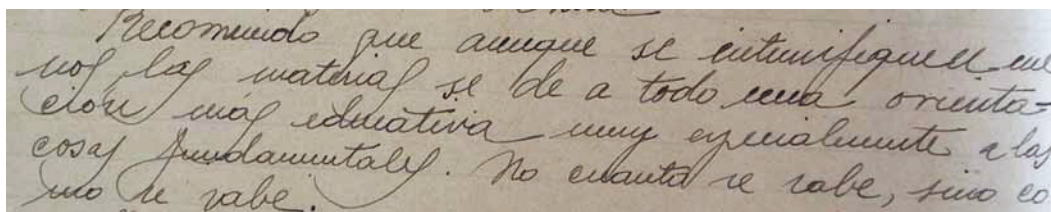 Recomiendo que aunque se intensifiquen me
nos las materias se de a todo una orienta=
ción más educativa muy especialmente a las
cosas fundamentales. No cuanto se sabe, sino co
mo se sabe.